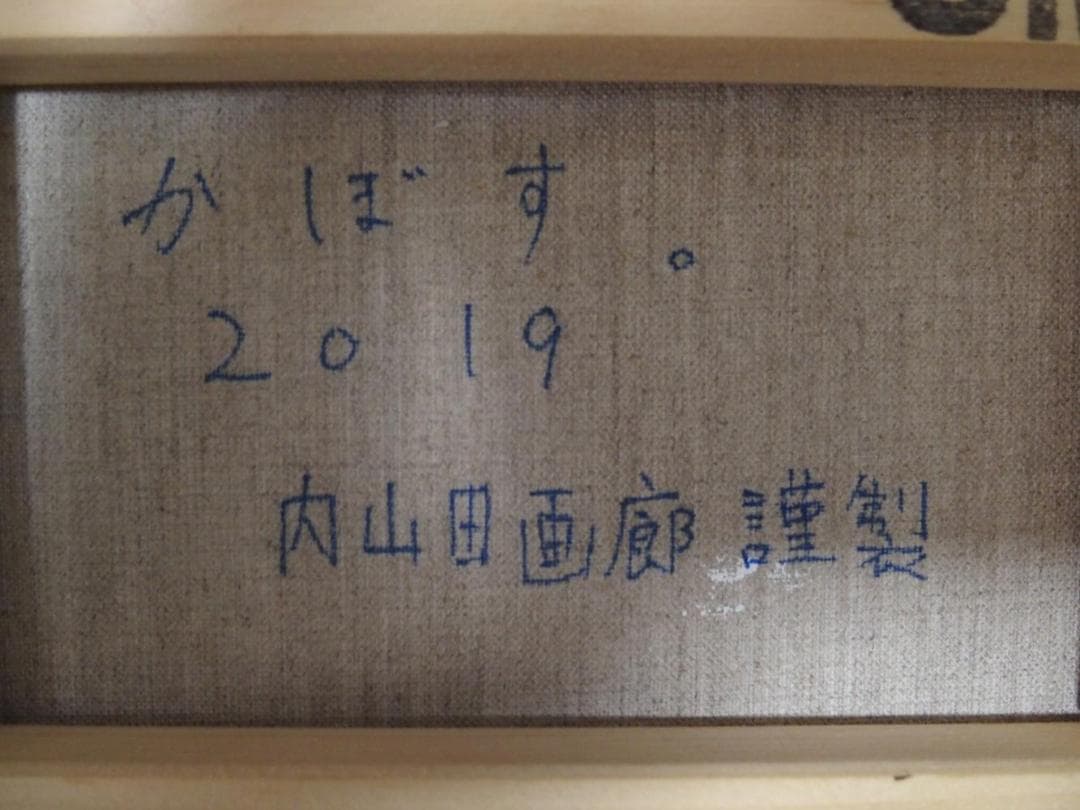 かぼす。
2019
内山田画廊 謹製